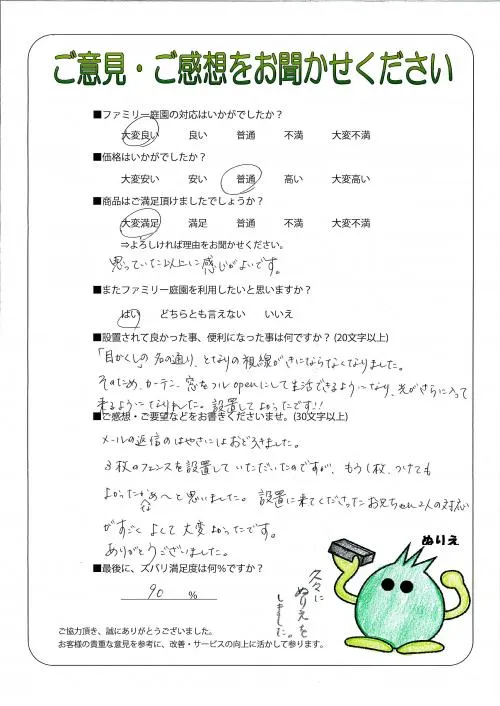 ご意見・ご感想をお聞かせください
■ファミリー庭園の対応はいかがでしたか？
大変良い 良い 普通 不満 大変不満
■価格はいかがでしたか？
大変安い 安い 普通 高い 大変高い
■商品はご満足頂けましたでしょうか？
大変満足 満足 普通 不満 大変不満
⇒よろしければ理由をお聞かせください。
思っていた以上に感じがよいです。
■またファミリー庭園を利用したいと思いますか？
はい どちらとも言えない いいえ
■設置されて良かった事、便利になった事は何ですか？(20文字以上)
「目かくし」の名の通り、となりの視線がきにならなくなりました。
そのため、カーテン、窓をフルopenにして生活できるようになり、光がさらに入って
来るようになりました。設置してよかったです!!
■ご感想・ご要望などをお書きくださいませ。(30文字以上)
メールの返信のはやさにはおどろきました。
3枚のフェンスを設置していただいたのですが、もう1枚、つけても
よかったかなぁ〜と思いました。設置に来てくださったお兄ちゃん2人の対応
がすごくよくて大変よかったです。
ありがとうございました。
ぬりえ
■最後に、ズバリ満足度は何％ですか？
90 ％
久々に
ぬりえを
しました。
ご協力頂き、誠にありがとうございました。
お客様の貴重な意見を参考に、改善・サービスの向上に活かして参ります。